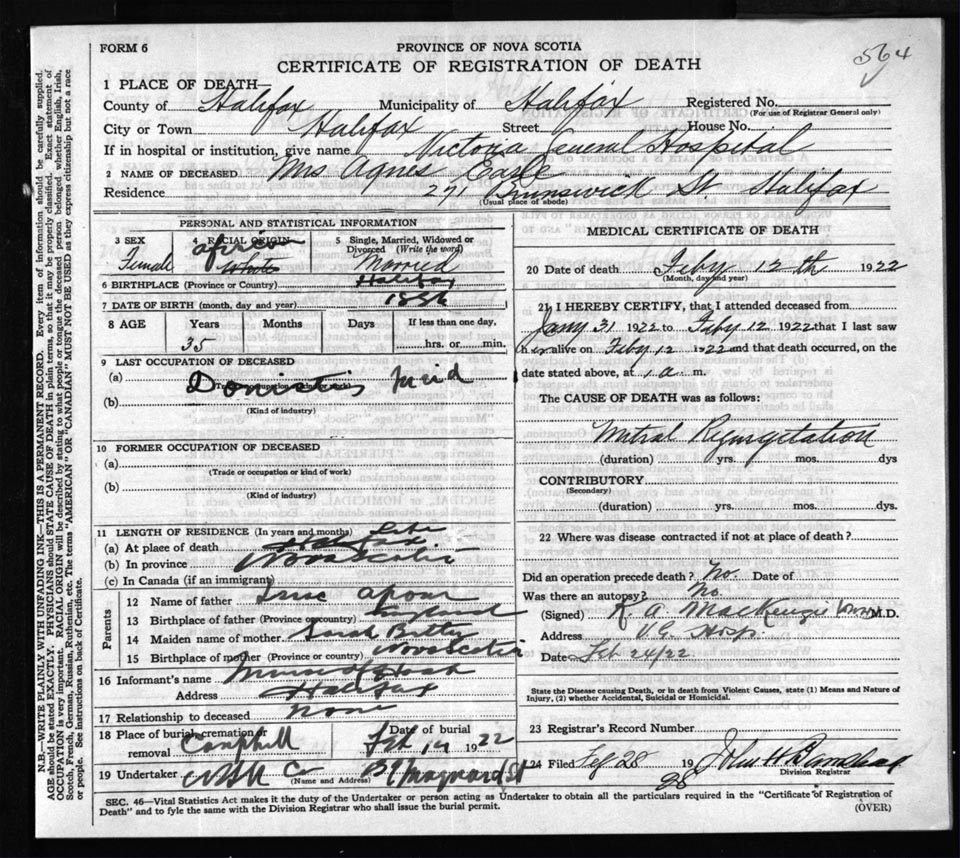 FORM 6
PROVINCE OF NOVA SCOTIA
564
CERTIFICATE OF REGISTRATION OF DEATH
1 PLACE OF DEATH—
County of Halifax Municipality of Halifax Registered No.
(For use of Registrar General only)
City or Town Halifax Street House No.
If in hospital or institution, give name Victoria General Hospital
2 NAME OF DECEASED Mrs Agnes Earle
Residence 271 Brunswick St. Halifax
(Usual place of abode)
PERSONAL AND STATISTICAL INFORMATION
3 SEX 4 RACIAL ORIGIN 5 Single, Married, Widowed or Divorced (Write the word)
Female African White Married
6 BIRTHPLACE (Province or Country) Halifax
7 DATE OF BIRTH (month, day and year) 1886
8 AGE Years Months Days If less than one day,
35 hrs. or min.
9 LAST OCCUPATION OF DECEASED
(a) Maid
(b)
(Kind of industry)
10 FORMER OCCUPATION OF DECEASED
(a)
(Trade or occupation or kind of work)
(b)
(Kind of industry)
11 LENGTH OF RESIDENCE (In years and months) Life
(a) At place of death Halifax
(b) In province Nova Scotia
(c) In Canada (if an immigrant)
Parents
12 Name of father
13 Birthplace of father (Province or country) England
14 Maiden name of mother Sarah
15 Birthplace of mother (Province or country) Nova Scotia
16 Informant's name
Address Halifax
17 Relationship to deceased none
18 Place of burial, cremation or removal Date of burial
Camphill Feb 14 1922
19 Undertaker Co Maynard St
(Name and Address)
MEDICAL CERTIFICATE OF DEATH
20 Date of death Feby 12th 1922
(Month, day and year)
21 I HEREBY CERTIFY, that I attended deceased from
Jany 31 1922 to Feby 12 1922 that I last saw
her alive on Feby 12 1922 and that death occurred, on the
date stated above, at 1 a m.
The CAUSE OF DEATH was as follows:
Mitral Regurgitation
(duration) yrs. mos. dys
CONTRIBUTORY
(Secondary)
(duration) yrs. mos. dys.
22 Where was disease contracted if not at place of death?
Did an operation precede death? No. Date of
Was there an autopsy? No.
(Signed) K. A. MacKenzie M.D.
Address V.G. Hosp.
Date Feb 24/22
State the Disease causing Death, or in death from Violent Causes, state (1) Means and Nature of Injury, (2) whether Accidental, Suicidal or Homicidal.
23 Registrar's Record Number
24 Filed Feb 28 19 John H
28 Division Registrar
SEC. 46—Vital Statistics Act makes it the duty of the Undertaker or person acting as Undertaker to obtain all the particulars required in the "Certificate of Registration of
Death" and to fyle the same with the Division Registrar who shall issue the burial permit.
(OVER)
N.B.—WRITE PLAINLY WITH UNFADING INK—THIS IS A PERMANENT RECORD. Every item of information should be carefully supplied.
AGE should be stated EXACTLY. PHYSICIANS should STATE CAUSE OF DEATH in plain terms, so that it may be properly classified. Exact statement of
OCCUPATION is very important. RACIAL ORIGIN will be described by stating to what people or tongue the deceased person belonged whether English, Irish,
Scotch, French, German, Russian, Ruthenian, etc. The terms "AMERICAN" OR "CANADIAN" MUST NOT BE USED as they express citizenship but not a race
or people. See instructions on back of Certificate.